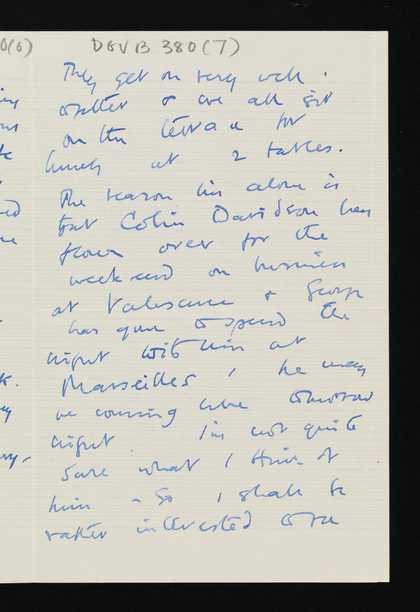 0(6) DGVB 380(7)
They get on very well.
together & we all sit
on the terrace for
lunch at 2 tables.
The reason I'm alone is
that Colin Davidson has
flown over for the
weekend on business
at Valescure & George
has gone to spend the
night with him at
Marseilles, he may
be coming here tomorrow
night. I'm not quite
sure what I think of
him - So I shall be
rather interested to see